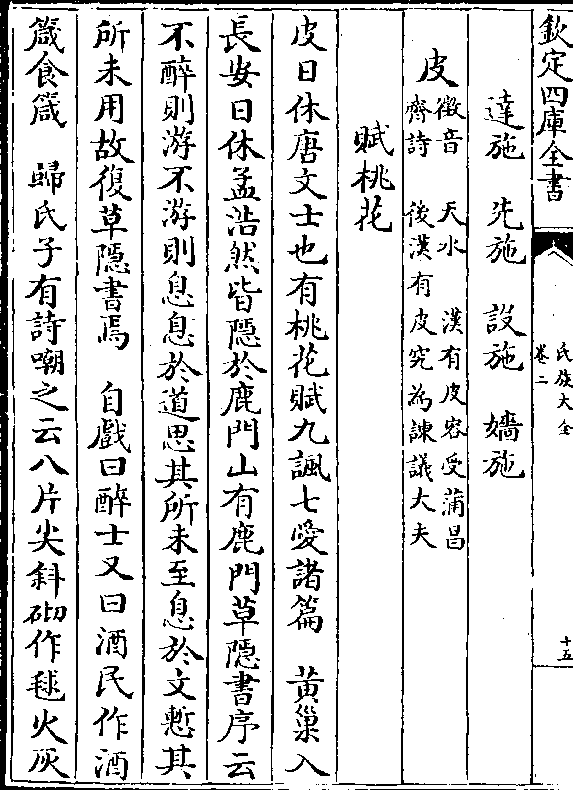 欽定四庫全書
氏族大全
卷二
十五
達施　先施　設施　嬙施
皮
徵音　天水　漢有皮容受蒲昌
齊詩　後漢有皮究為諫議大夫
賦桃花
皮日休唐文士也有桃花賦九諷七愛諸篇　黃巢入
長安日休孟浩然皆隱於鹿門山有鹿門草隱書序云
不醉則游不游則息息於道思其所未至息於文慙其
所未用故復草隱書焉　自戲曰醉士又曰酒民作酒
箴食箴　歸氏子有詩嘲之云八片尖斜砌作毬火灰